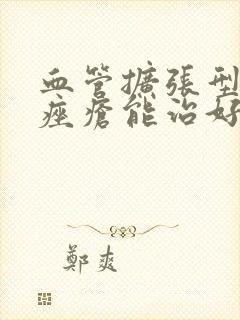 血管擴張型
痤瘡能治好
鄭爽